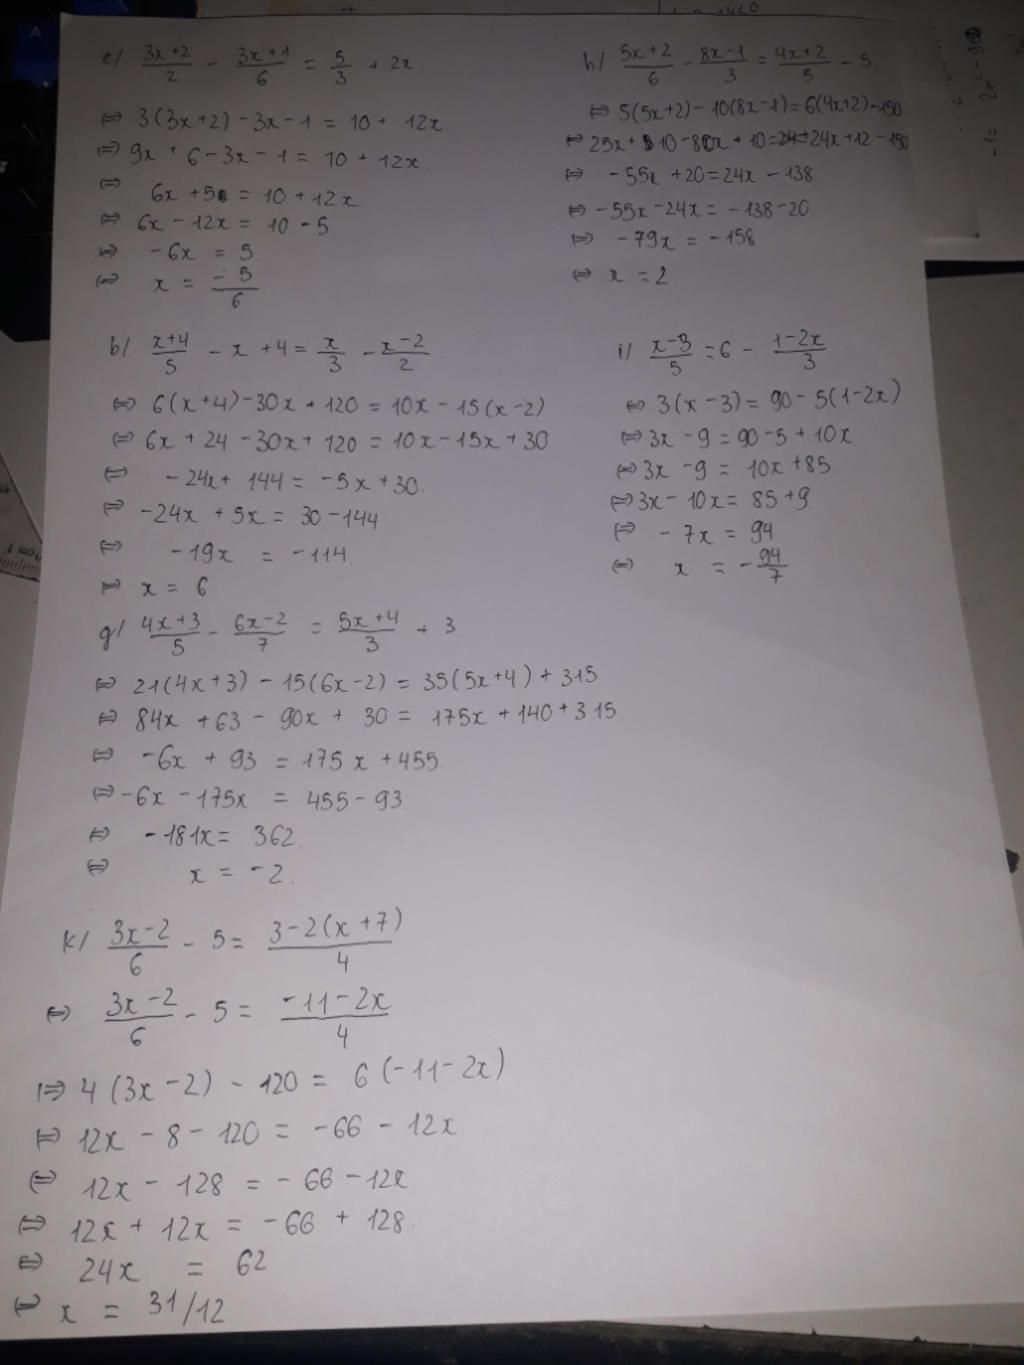 e/ (3x+2)/2 - (3x+1)/6 = 5/3 + 2x
⇔ 3(3x+2) - 3x - 1 = 10 + 12x
⇔ 9x + 6 - 3x - 1 = 10 + 12x
⇔ 6x + 5 = 10 + 12x
⇔ 6x - 12x = 10 - 5
⇔ -6x = 5
⇔ x = -5/6
h/ (5x+2)/6 - (8x-1)/3 = (4x+2)/5 - 5
⇔ 5(5x+2) - 10(8x-1) = 6(4x+2) - 150
⇔ 25x + 10 - 80x + 10 = 24x + 12 - 150
⇔ -55x + 20 = 24x - 138
⇔ -55x - 24x = -138 - 20
⇔ -79x = -158
⇔ x = 2
b/ (x+4)/5 - x + 4 = x/3 - (x-2)/2
⇔ 6(x+4) - 30x + 120 = 10x - 15(x-2)
⇔ 6x + 24 - 30x + 120 = 10x - 15x + 30
⇔ -24x + 144 = -5x + 30
⇔ -24x + 5x = 30 - 144
⇔ -19x = -114
⇔ x = 6
i/ (x-3)/5 = 6 - (1-2x)/3
⇔ 3(x-3) = 90 - 5(1-2x)
⇔ 3x - 9 = 90 - 5 + 10x
⇔ 3x - 9 = 10x + 85
⇔ 3x - 10x = 85 + 9
⇔ -7x = 94
⇔ x = -94/7
g/ (4x+3)/5 - (6x-2)/7 = (5x+4)/3 + 3
⇔ 21(4x+3) - 15(6x-2) = 35(5x+4) + 315
⇔ 84x + 63 - 90x + 30 = 175x + 140 + 315
⇔ -6x + 93 = 175x + 455
⇔ -6x - 175x = 455 - 93
⇔ -181x = 362
⇔ x = -2
k/ (3x-2)/6 - 5 = (3-2(x+7))/4
⇔ (3x-2)/6 - 5 = (-11-2x)/4
⇔ 4(3x-2) - 120 = 6(-11-2x)
⇔ 12x - 8 - 120 = -66 - 12x
⇔ 12x - 128 = -66 - 12x
⇔ 12x + 12x = -66 + 128
⇔ 24x = 62
⇔ x = 31/12